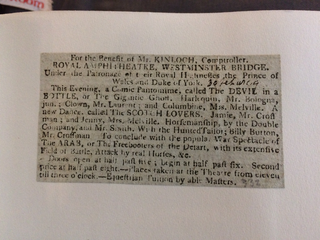 For the Benefit of Mr. KINLOCH, Comptroller.
ROYAL AMPHITHEATRE, WESTMINSTER BRIDGE.
Under the Patronage of their Royal Highnesses the Prince of
Wales and Duke of York.
This Evening, a Comic Pantomime, called The DEVIL in a
BOTTLE, or The Gigantic Ghost. Harlequin, Mr. Bologna,
jun.; Clown, Mr. Laurent; and Columbine, Mrs. Melville. A
new Dance, called The SCOTCH LOVERS. Jamie, Mr. Crosf
man; and Jenny, Mrs. Melville. Horsemanship, by the Double
Company, and Mr. Smith. With the Hunted Tailor; Billy Button,
Mr. Crossman. To conclude with the popular War Spectacle of
The ARAB, or The Freebooters of the Desart, with its extensive
Field of Battle, Attack by real Horses, &c.
Doors open at half past five; begin at half past six. Second
price at half past eight.—Places taken at the Theatre from eleven
till three o'clock.—Equestrian Tuition by able Masters.